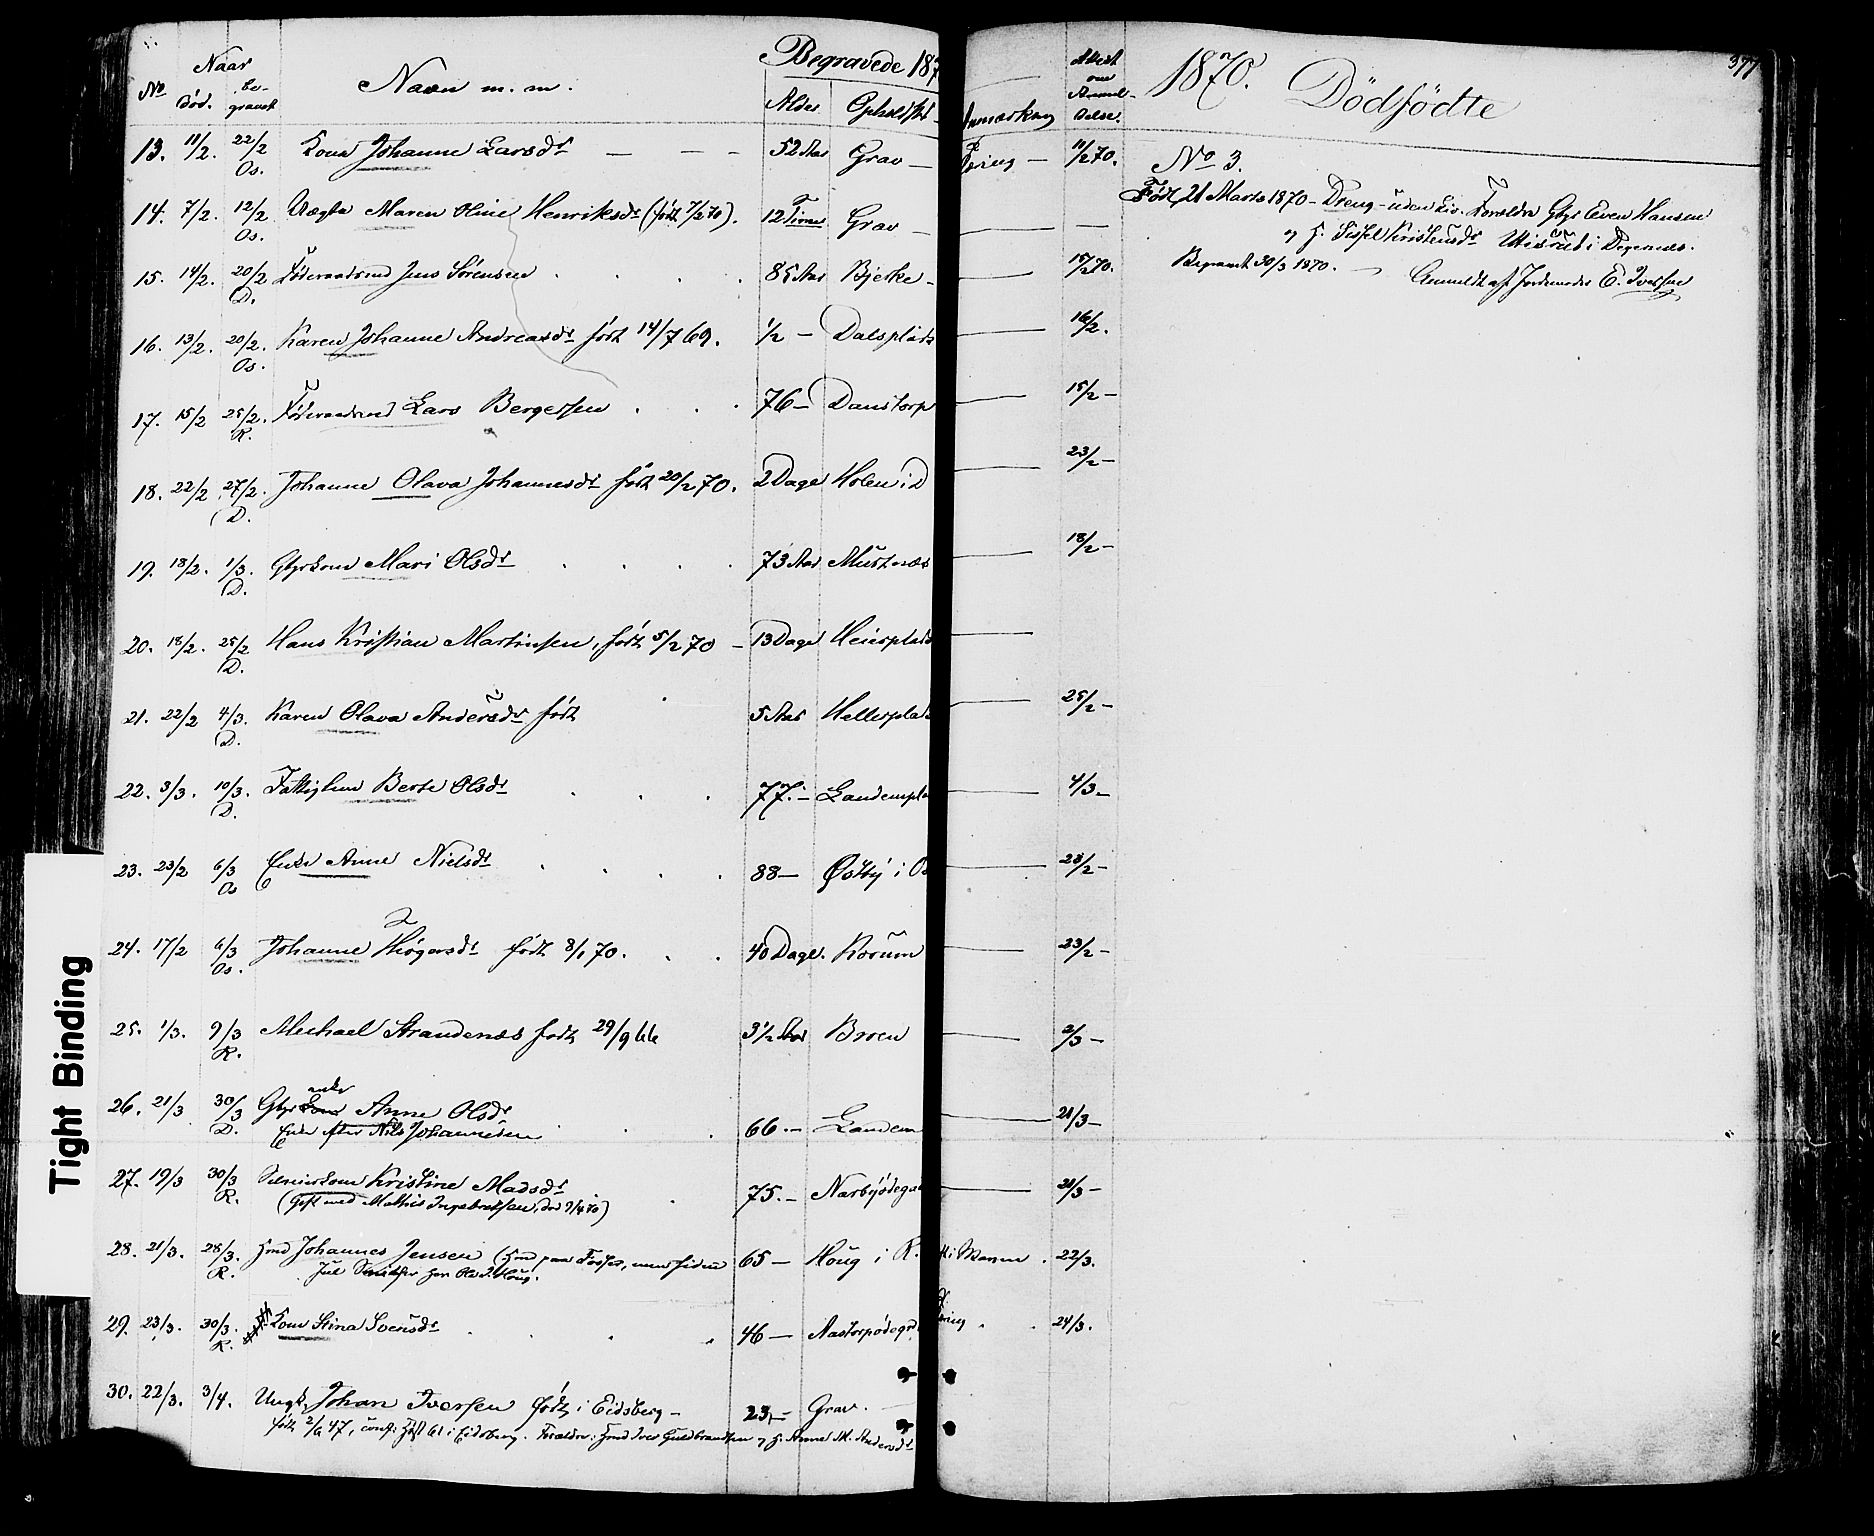 Begravede 187
No
Naar
død.
be-
gravet
Navn m. m.
Alder
Opholdsst.
Anmærkning
Attest
om
Anmel-
delse.
13. 11/2. 22/2 Os. Kone Johanne Larsdr — — — 52 Aar Grav — 11/2 70.
14. 7/2. 12/2 Os. Uægte Maren Oline Henriksdr (født 7/2 70). 12 Timer Grav —
15. 14/2. 20/2 D. Føderaadsmd Jens Sørensen 85 Aar Bjerke — 15/2 70.
16. 13/2. 20/2. Os. Karen Johanne Andreasdr født 14/7 69. 1/2 — Dalsplads 16/2.
17. 15/2 25/2. R. Føderaadsmd Lars Bergersen 76 — Danstorp 15/2 —
18. 22/2 27/2. D. Johanne Olava Johannesdr født 20/2 70. 2 Dage Holen i D 23/2 —
19. 18/2. 1/3. D. Gbrkone Mari Olsdr 73 Aar Mustnæs 18/2 —
20. 18/2. 25/2 D. Hans Kristian Martinsen, født 5/2 70 — 13 Dage Heiersplads
21. 22/2 4/3. D. Karen Olava Andersdr født 5 Aar Hellesplads 25/2 —
22. 3/3. 10/3. D. Fattiglem Berte Olsdr 77. — Landempla 4/3 —
23. 23/2 6/3 Os Enke Anne Nielsdr 88 — Østby i Os 23/2 —
24. 17/2 6/3 Os. Johanne Thøgersdr født 8/1 70. 40 Dage. Korum 23/2 —
25. 1/3. 9/3 R. Michael Strandenæs født 29/9 66 3 1/2 Aar Broen 2/3 —
26. 21/3 30/3 D. Gbr Kone enke Anne Olsdr 66. — Landem 21/3 —
Enke efter Nils Johannesen
27. 19/3 30/3 R. Kristine Madsdr 75. — 21/3 —
(Gift med Mathis Ingebretsen, død 9/4 70)
28. 21/3. 28/3. R. Johannes Jensen 65 — Houg i R. 22/3.
29. 23/3. 30/3. R. Kone Stina Svensdr 46 — 24/3.
30. 22/3. 3/4. Ungk. Johan Iversen født i Eidsberg — 23, — Grav.
født 2/6 47, conf: Høst 61 i Eidsberg. Forældre: Gmd Iver Guldbrandsen og H. Anne M. Andersdr
1870. Dødfødte
377
No 3.
Født 21 Marts 1870 — Dreng — uden Liv. Forældre Gbr Even Hansen
og H. Sissel Kristensdr i Degernes.
Begravet 30/3 1870. — Anmeldt af Jordemoder E. Iversen
Tight Binding